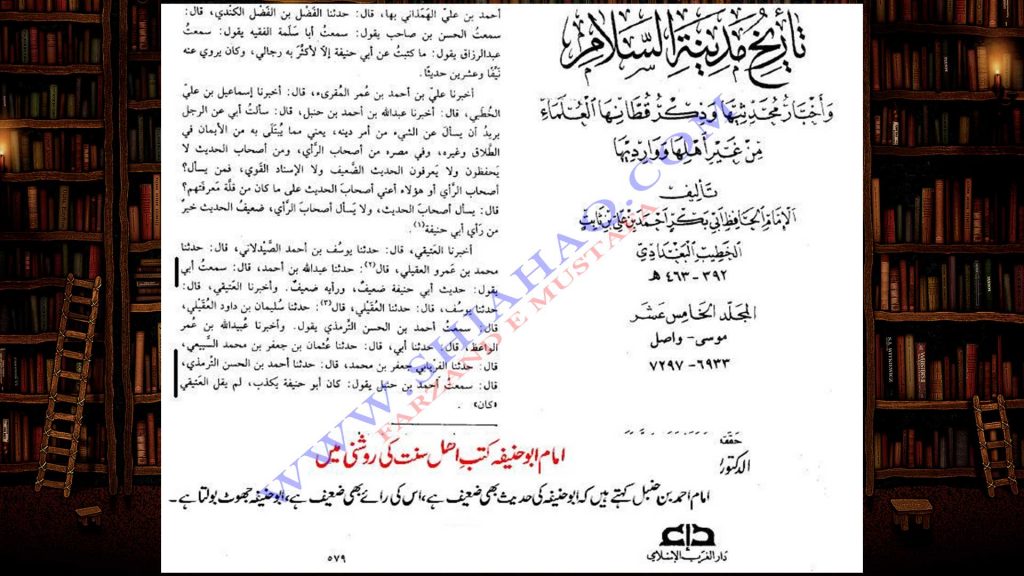 تاريخ مدينة السلام
وأخبار محدثيها وذكر قطانها العلماء
من غير أهلها ووارديها
تأليف
الإمام الحافظ أبي بكر أحمد بن علي بن ثابت
الخطيب البغدادي
٣٩٢-٤٦٣ هـ
المجلد الخامس عشر
موسى - واصل
٦٩٣٣-٧٢٩٧
حققه
الدكتور
دار الغرب الإسلامي
أحمد بن علي الهمذاني بها، قال: حدثنا الفضل بن الفضل الكندي، قال:
سمعت الحسن بن صاحب يقول: سمعت أبا سلمة الفقيه يقول: سمعت
عبدالرزاق يقول: ما كتبت عن أبي حنيفة إلا لأكثر به رجالي، وكان يروي عنه
نيفًا وعشرين حديثًا.
أخبرنا علي بن أحمد بن عمر المقرىء، قال: أخبرنا إسماعيل بن علي
الخطبي، قال: حدثنا عبدالله بن أحمد بن حنبل، قال: سألت أبي عن الرجل
يريد أن يسأل عن الشيء من أمر دينه، يعني مما يبتلى به من الأيمان في
الطلاق وغيره، وفي مصره من أصحاب الرأي، ومن أصحاب الحديث لا
يحفظون ولا يعرفون الحديث الضعيف ولا الإسناد القوي، فمن يسأل؟
أصحاب الرأي أو هؤلاء أعني أصحاب الحديث على ما كان من قلة معرفتهم؟
قال: يسأل أصحاب الحديث، ولا يسأل أصحاب الرأي، ضعيف الحديث خير
من رأي أبي حنيفة(١).
أخبرنا العتيقي، قال: حدثنا يوسف بن أحمد الصيدلاني، قال: حدثنا
محمد بن عمرو العقيلي، قال(٢): حدثنا عبدالله بن أحمد، قال: سمعت أبي
يقول: حديث أبي حنيفة ضعيف، ورأيه ضعيف. وأخبرنا العتيقي، قال:
حدثنا يوسف، قال: حدثنا العقيلي، قال(٣): حدثنا سليمان بن داود العقيلي،
قال: سمعت أحمد بن الحسن الترمذي يقول. وأخبرنا عبيدالله بن عمر
الواعظ، قال: حدثنا أبي، قال: حدثنا عثمان بن جعفر بن محمد السبيعي،
قال: حدثنا الفريابي جعفر بن محمد، قال: حدثنا أحمد بن الحسن الترمذي،
قال: سمعت أحمد بن حنبل يقول: كان أبو حنيفة يكذب، لم يقل العتيقي
«كان» .
امام ابو حنیفہ کتب اھل سنت کی روشنی میں
امام احمد بن حنبل کہتے ہیں کہ ابو حنیفہ کی حدیث بھی ضعیف ہے، اس کی رائے بھی ضعیف ہے، ابو حنیفہ جھوٹ بولتا ہے۔
٥٧٩
WWW.SHIAHAQ.COM
FARZAND E MUSTAFA